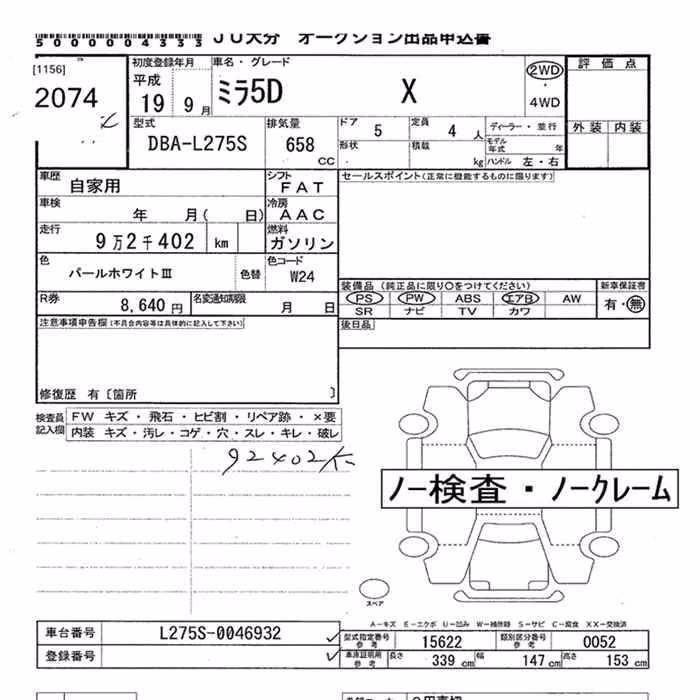 5000004333 JU大分 オークション出品申込書
[1156]
2074
初度登録年月
平成
19 9月
車名・グレード
ミラ5D X
2WD
・
4WD
評価点
外装 内装
型式
DBA-L275S
排気量
658
CC
ドア 5
定員 4 人
形状
積載 kg
ディーラー・並行
モデル年式 年
ハンドル 左・右
車歴
自家用
シフト
FAT
セールスポイント(正常に機能するものに限ります)
車検
年 月( 日)
冷房
AAC
走行
9万2千402 km
燃料
ガソリン
色
パールホワイトⅢ
色替
色コード
W24
装備品(純正品に限り○をつけてください)
新車保証書
PS PW ABS エアB AW
有・無
SR ナビ TV カワ
R券
8,640 円
名変通知期限
月 日
後日品
注意事項申告欄(不具合内容等は具体的に記入して下さい)
修復歴 有〔箇所 〕
検査員
記入欄
FW キズ・飛石・ヒビ割・リペア跡・×要
内装 キズ・汚レ・コゲ・穴・スレ・キレ・破レ
92402K
ノー検査・ノークレーム
スペア
A−キズ E−エクボ U−凹み W−補修跡 S−サビ C−腐食 XX−交換済
車台番号
L275S-0046932
登録番号
型式指定番号
参考
15622
類別区分番号
参考
0052
車庫証明用
参考
長さ 339 cm
幅 147 cm
高さ 153 cm